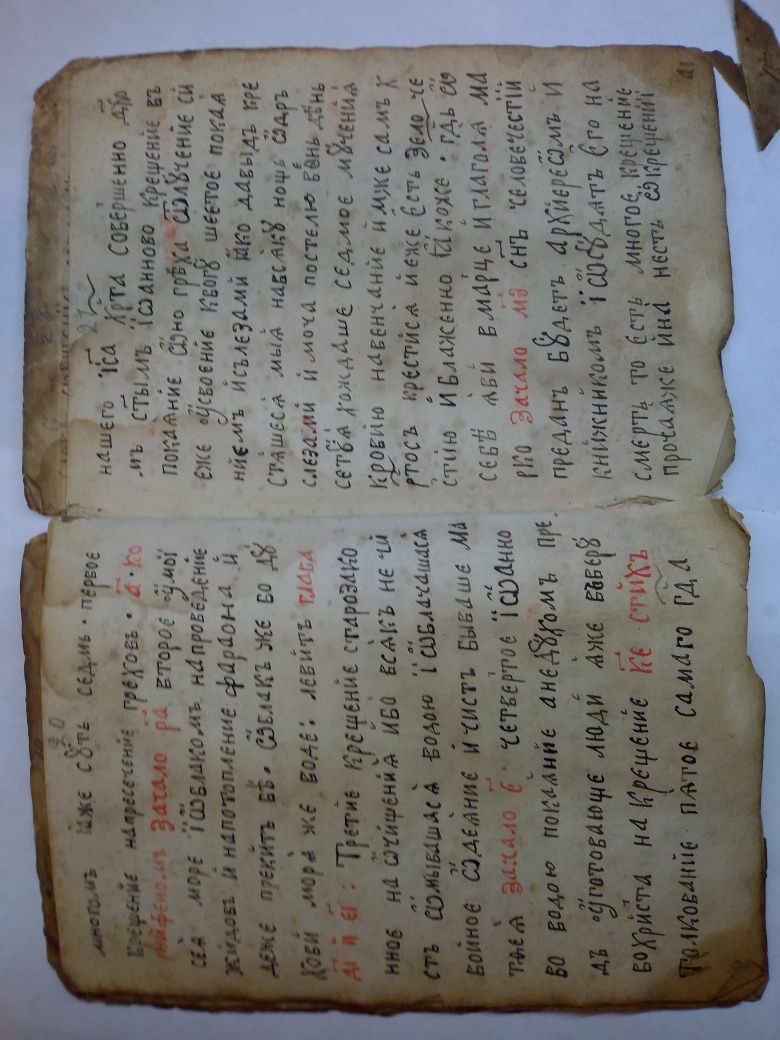 20
многомъ ꙗже сꙋть седмь · первое
крещение напресечение греховъ · а҃ · ко
рийфеномъ зачало ра҃ второе ᲂумо́ї
сеа море ї ѡблакомъ напроведение
жидовъ и напотопление фараона и
деже прекитъ бѣ · ѡблакъ же бо дꙋ
хови морѧ же воде : левитъ глава
д҃і и е҃і : Третие крещение старозако
нное на ѡчищениѧ ибо всѧкъ не чи
стъ ѡмывашасѧ водою ї ѡблачашасѧ
войное ѡдеѧние и чистъ бываше ма
тѳеѧ зачало є҃ · четвертое їѡанно
во водою покаѧние анедꙋхомъ пре
дъ ᲂуготовающе люди ꙗже вѣверꙋ
вохриста на крещение к҃е стихъ
Толкование пѧтое самаго гд҃а
27
нашего іс҃а хр҃та совершенно дх҃о
мъ ст҃ымъ їѡанново крещение въ
покаѧние ѡно греха ѡлꙋчение си
еже ᲂусвоение кбогꙋ шестое покаѧ
ниемъ исълезами ꙗко давыдъ кре
сташесѧ мыѧ навсѧкꙋ нощь ѡдръ
слезами и моча постелю ве҃нь дн҃ь
сетва хождаше седмое мꙋчениѧ
кровию навенчание имже самъ х
ртосъ крестисѧ и еже есть зело че
стию и блаженно ꙗкоже · гд҃ь ѡ
себѣ ꙗви в марце и глаголѧ ма
рко зачало м҃з сн҃ъ человечестїи
преданъ бꙋдетъ архиереѡмъ и
книжникомъ ї ѡсꙋдатъ его на
смерть то есть многое крещение
прочаѧже и҃на несть ѡкрещенїї